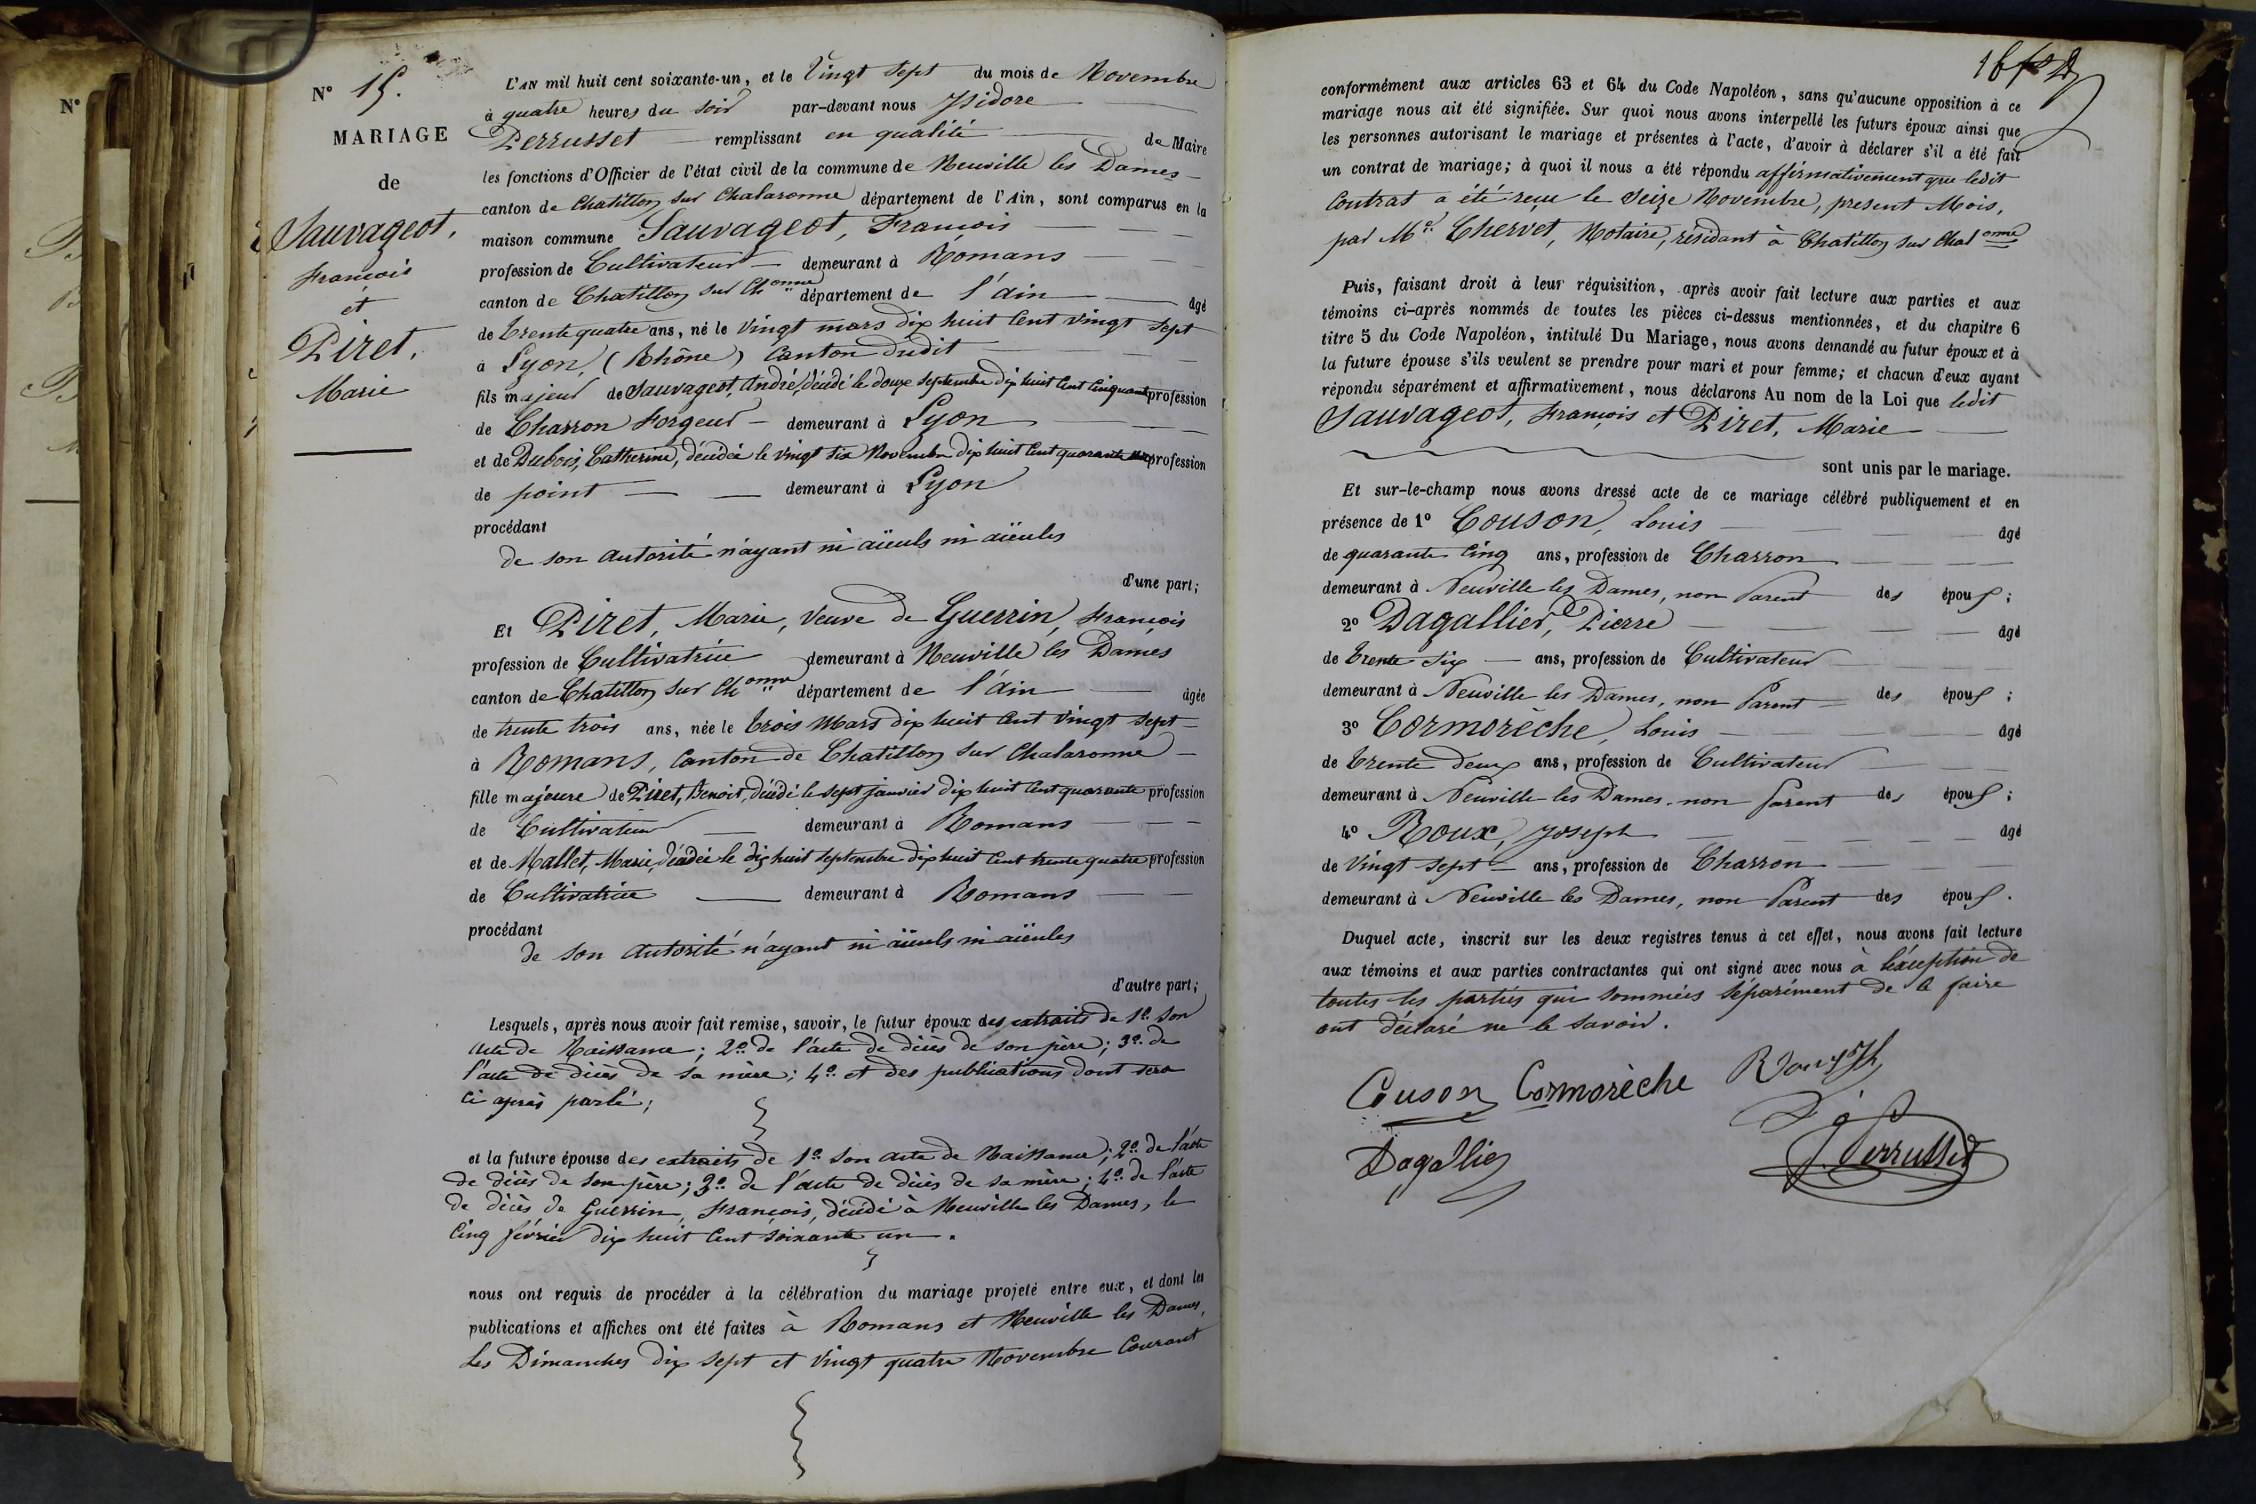 N° 15.
MARIAGE
de
Sauvageot,
François
et
Piret,
Marie
L'AN mil huit cent soixante-un, et le Vingt sept du mois de Novembre
à quatre heures du soir par-devant nous Isidore
Perrusset remplissant en qualité de Maire
les fonctions d'Officier de l'état civil de la commune de Neuville les Dames
canton de Chatillon sur Chalaronne département de l'Ain, sont comparus en la
maison commune Sauvageot, François
profession de Cultivateur demeurant à Romans
canton de Chatillon sur Ch onne département de l'ain âgé
de trente quatre ans, né le vingt mars dix huit cent vingt sept
à Lyon, (Rhône) Canton dudit
fils majeur de Sauvageot, André, décédé le douze septembre dix huit cent cinquante profession
de Charron Forgeur demeurant à Lyon
et de Dubois, Catherine, décédée le vingt six Novembre dix huit cent quarante profession
de point demeurant à Lyon
procédant
de son autorité n'ayant ni aïeuls ni aïeules
d'une part;
Et Piret, Marie, veuve de Guerrin, François
profession de Cultivatrice demeurant à Neuville les Dames
canton de Chatillon sur Ch onne département de l'ain âgée
de trente trois ans, née le trois Mars dix huit cent vingt sept
à Romans, Canton de Chatillon sur Chalaronne
fille majeure de Piret, Benoit, décédé le sept janvier dix huit cent quarante profession
de Cultivateur demeurant à Romans
et de Mallet, Marie, décédée le dix huit septembre dix huit cent trente quatre profession
de Cultivatrice demeurant à Romans
procédant
de son autorité n'ayant ni aïeuls ni aïeules
d'autre part;
Lesquels, après nous avoir fait remise, savoir, le futur époux des extraits de 1° son
acte de Naissance; 2° de l'acte de décès de son père; 3° de
l'acte de décès de sa mère; 4° et des publications dont sera
ci après parlé;
et la future épouse des extraits de 1° son acte de Naissance; 2° de l'acte
de décès de son père; 3° de l'acte de décès de sa mère; 4° de l'acte
de décès de Guerrin, François, décédé à Neuville les Dames, le
cinq février dix huit cent soixante un.
nous ont requis de procéder à la célébration du mariage projeté entre eux, et dont les
publications et affiches ont été faites à Romans et Neuville les Dames,
les Dimanches dix sept et vingt quatre Novembre Courant
conformément aux articles 63 et 64 du Code Napoléon, sans qu'aucune opposition à ce
mariage nous ait été signifiée. Sur quoi nous avons interpellé les futurs époux ainsi que
les personnes autorisant le mariage et présentes à l'acte, d'avoir à déclarer s'il a été fait
un contrat de mariage; à quoi il nous a été répondu affirmativement que ledit
Contrat a été reçu le seize Novembre, present Mois,
par Me. Chervet, Notaire, résidant à Chatillon sur Chal onne
Puis, faisant droit à leur réquisition, après avoir fait lecture aux parties et aux
témoins ci-après nommés de toutes les pièces ci-dessus mentionnées, et du chapitre 6
titre 5 du Code Napoléon, intitulé Du Mariage, nous avons demandé au futur époux et à
la future épouse s'ils veulent se prendre pour mari et pour femme; et chacun d'eux ayant
répondu séparément et affirmativement, nous déclarons Au nom de la Loi que ledit
Sauvageot, François et Piret, Marie
sont unis par le mariage.
Et sur-le-champ nous avons dressé acte de ce mariage célébré publiquement et en
présence de 1° Couson, Louis âgé
de quarante cinq ans, profession de Charron
demeurant à Neuville les Dames, non Parent des époux;
2° Dagallier, Pierre âgé
de trente six ans, profession de Cultivateur
demeurant à Neuville les Dames, non Parent des époux;
3° Cormorèche, Louis âgé
de trente deux ans, profession de Cultivateur
demeurant à Neuville les Dames, non parent des époux;
4° Roux, Joseph âgé
de vingt sept ans, profession de Charron
demeurant à Neuville les Dames, non Parent des époux.
Duquel acte, inscrit sur les deux registres tenus à cet effet, nous avons fait lecture
aux témoins et aux parties contractantes qui ont signé avec nous à l'exception de
toutes les parties qui sommées séparément de le faire
ont déclaré ne le savoir.
Couson Cormorèche
Dagallier
J. Perrusset